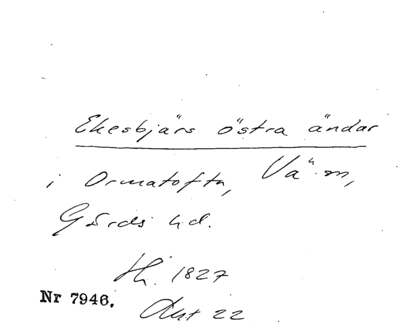 Ekesbjärs östra ändar
i Ormatofta, Vä ,
Gärds hd.
1827
Nr 7946.
Akt 22